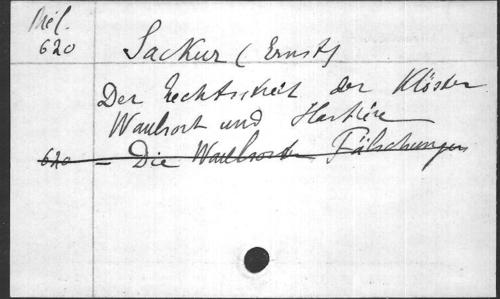 Mél.
620
Sackur (Ernst)
Der Rechtsstreit der Klöster
Waulsort und Hastière
620 - Die Waulsorter Fälschungen